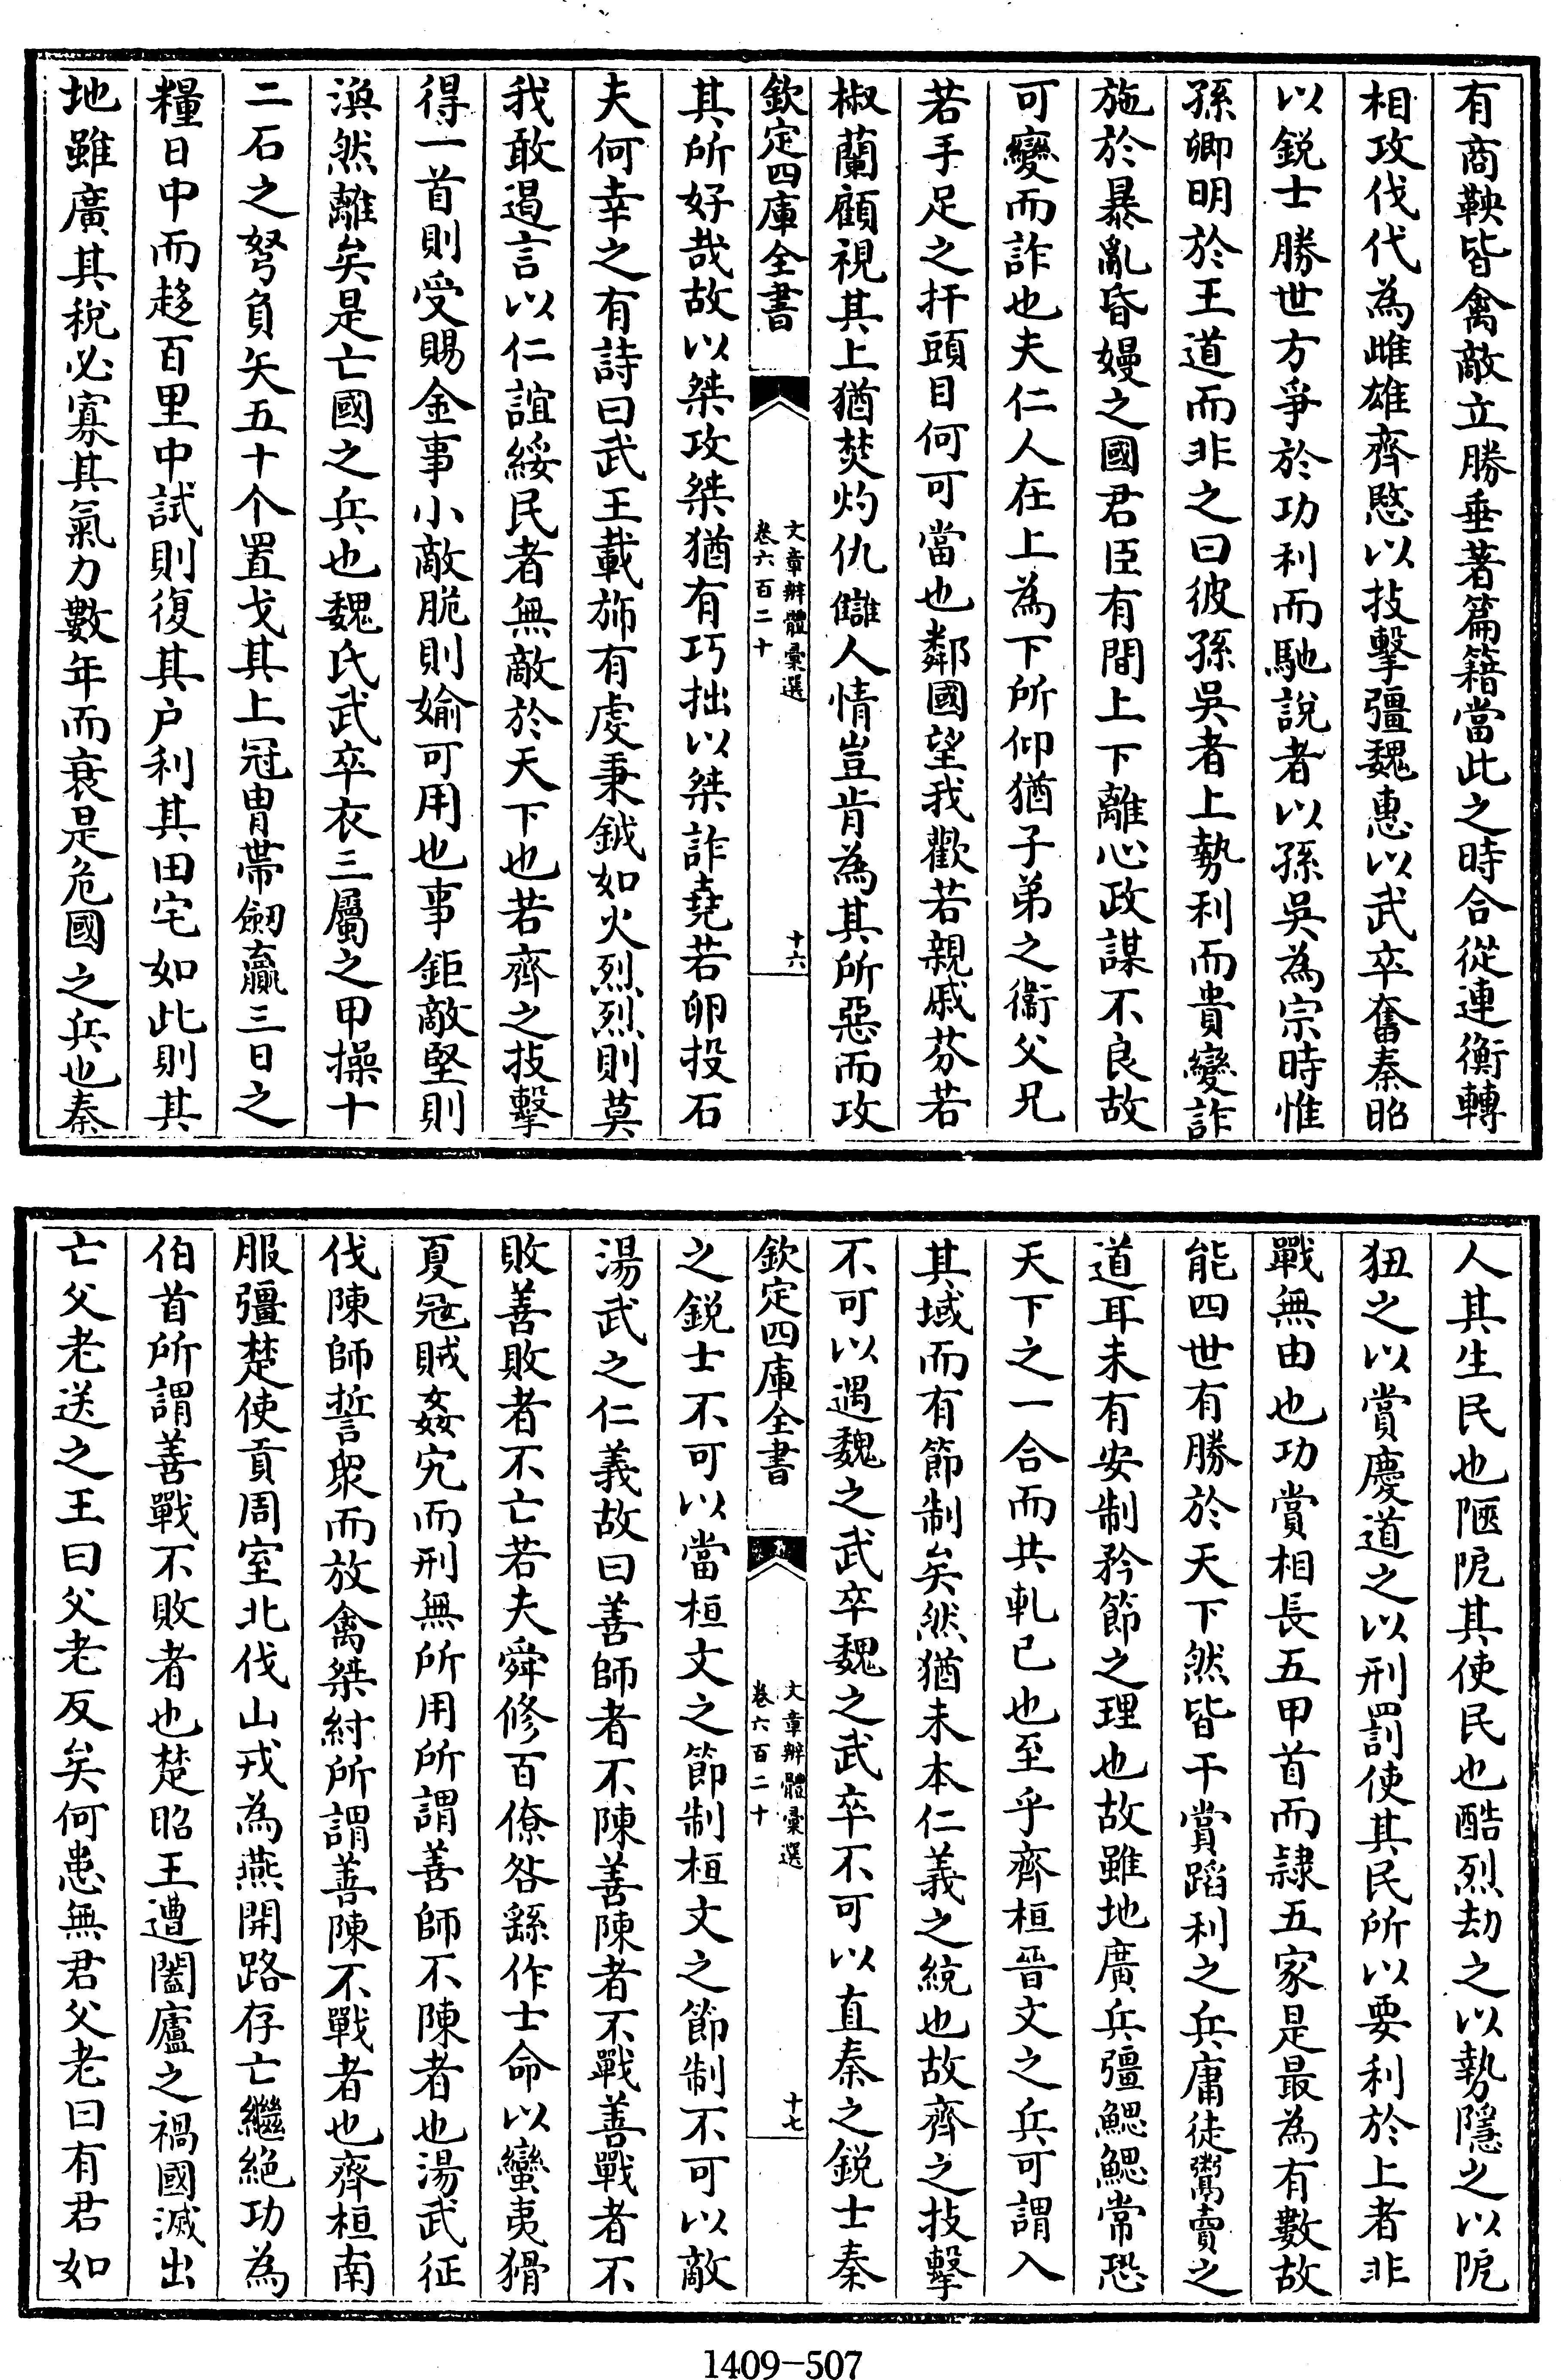 有商鞅皆禽敵立勝垂著篇籍當此之時合從連衡轉
相攻伐代為雌雄齊愍以技擊彊魏惠以武卒奮秦昭
以鋭士勝世方爭於功利而馳說者以孫吳為宗時惟
孫卿明於王道而非之曰彼孫吳者上勢利而貴變詐
施於暴亂昏嫚之國君臣有間上下離心政謀不良故
可變而詐也夫仁人在上為下所仰猶子弟之衞父兄
若手足之扞頭目何可當也鄰國望我歡若親戚芬若
椒蘭顧視其上猶焚灼仇讎人情豈肯為其所惡而攻
欽定四庫全書
文章辨體彙選
卷六百二十
十六
其所好哉故以桀攻桀猶有巧拙以桀詐堯若卵投石
夫何幸之有詩曰武王載斾有虔秉鉞如火烈烈則莫
我敢遏言以仁誼綏民者無敵於天下也若齊之技擊
得一首則受賜金事小敵脆則婾可用也事鉅敵堅則
渙然離矣是亡國之兵也魏氏武卒衣三屬之甲操十
二石之弩負矢五十个置戈其上冠胄帶劒贏三日之
糧日中而趍百里中試則復其户利其田宅如此則其
地雖廣其稅必寡其氣力數年而衰是危國之兵也秦
人其生民也陿阸其使民也酷烈劫之以勢隱之以阸
狃之以賞慶道之以刑罰使其民所以要利於上者非
戰無由也功賞相長五甲首而隸五家是最為有數故
能四世有勝於天下然皆干賞蹈利之兵庸徒鬻賣之
道耳未有安制矜節之理也故雖地廣兵彊鰓鰓常恐
天下之一合而共軋已也至乎齊桓晉文之兵可謂入
其域而有節制矣然猶未本仁義之統也故齊之技擊
不可以遇魏之武卒魏之武卒不可以直秦之鋭士秦
欽定四庫全書
文章辨體彙選
卷六百二十
十七
之鋭士不可以當桓文之節制桓文之節制不可以敵
湯武之仁義故曰善師者不陳善陳者不戰善戰者不
敗善敗者不亡若夫舜修百僚咎繇作士命以蠻夷猾
夏宼賊姦宄而刑無所用所謂善師不陳者也湯武征
伐陳師誓衆而放禽桀紂所謂善陳不戰者也齊桓南
服彊楚使貢周室北伐山戎為燕開路存亡繼絶功為
伯首所謂善戰不敗者也楚昭王遭闔廬之禍國滅出
亡父老送之王曰父老反矣何患無君父老曰有君如
1409-507